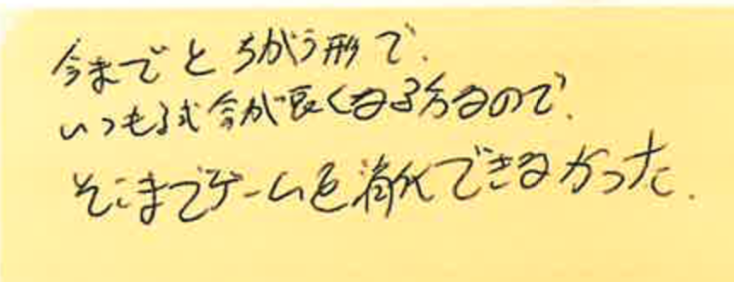 今までとちがう形で、
いつも試合が良くなる方なので、
そこまでゲームを消化できなかった.